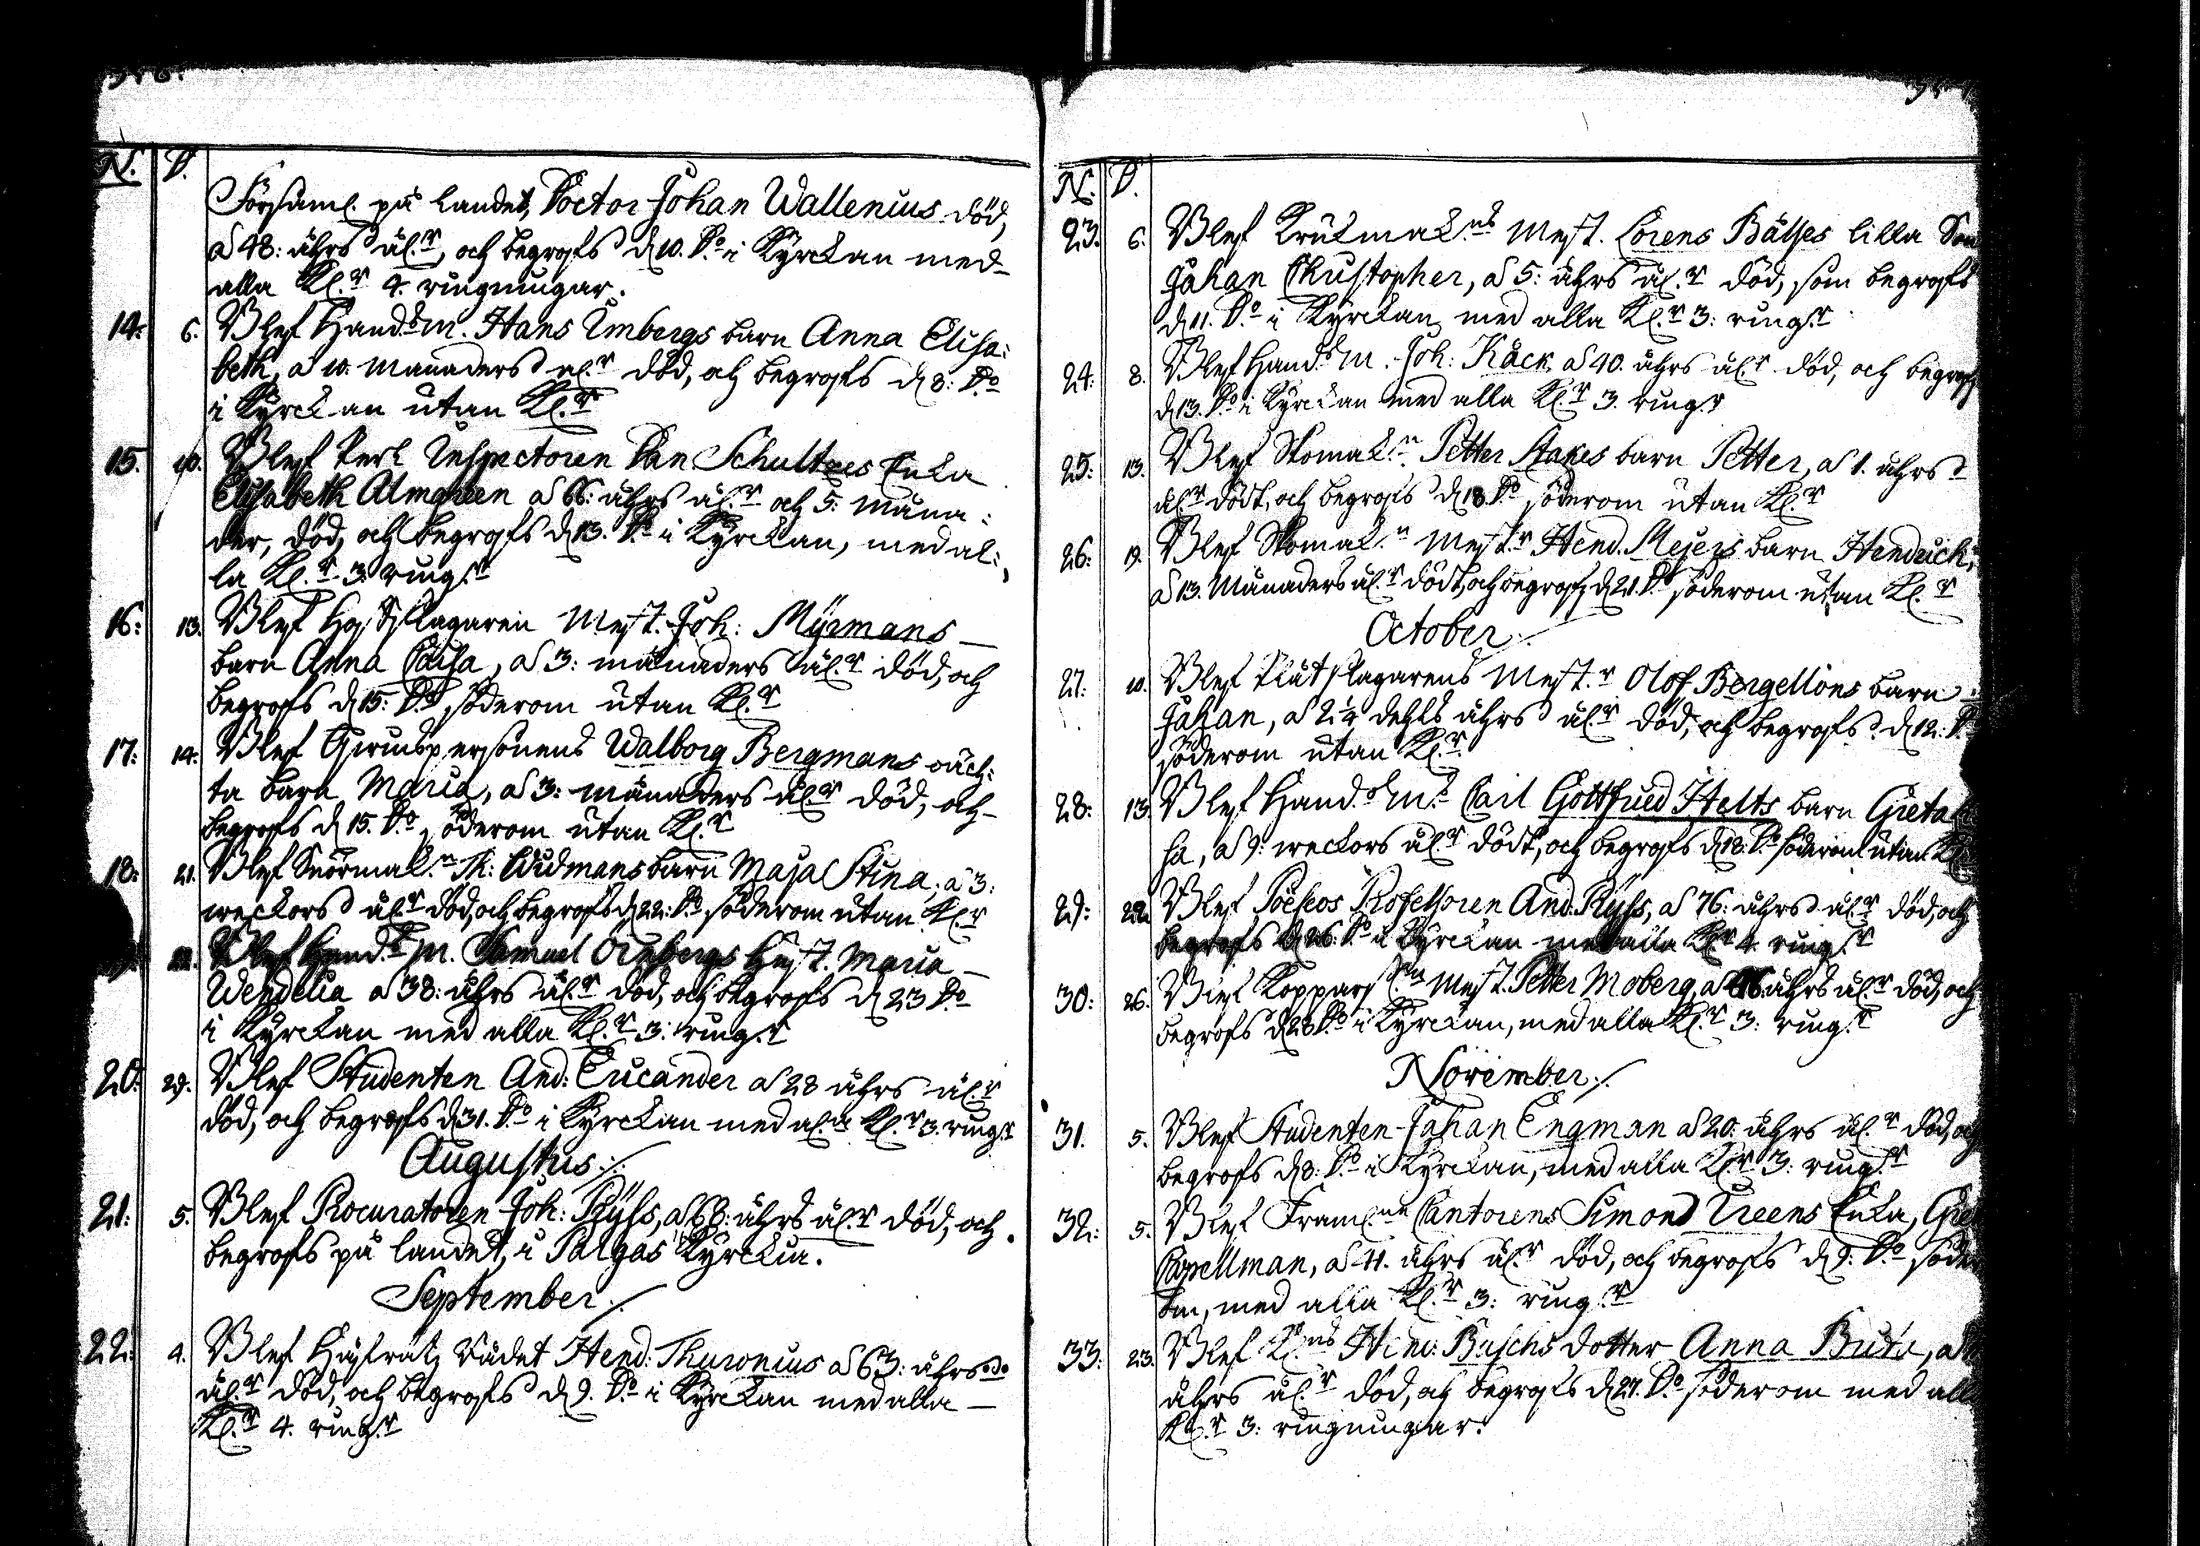 N. D.
Församl. på Landet, Doctor Johan Wallenius död,
a 48: åhrs ål.r, och begrofs d 10. D.o i Kyrckan med
alla Kl.r 4. ringningar.
14: 6. Blef Hand.s m. Hans Umbergs barn Anna Elisa:
beth, a 10. Månaders ål.r död, och begrofs d 8: D.o
i Kyrckan utan Kl.r
15. 10. Blef Perl Inspectoren Dan Schultzes Enka
Elisabeth Almgreen a 66: åhrs ål.r och 5: Måna:
der, död, och begrofs d 13. D.o i Kyrckan, med al:
la Kl.r 3: ring.r
16: 13. Blef Hofslagaren Mest. Joh: Myrmans
barn Anna Caisa, a 3: månaders ål.r död, och
begrofs d 15: D.o söderom utan Kl.r
17: 14. Blef Qwinspersonens Walborg Bergmans oäch:
ta barn Maria, a 3: månaders ål.r död, och
begrofs d 15. D.o söderom utan Kl.r
18: 21. Blef Snörmak.n Th: Widmans barn Maja Stina, a 3:
weckors ål.r död, och begrofs d 22: D.o söderom utan Kl.r
22. Blef Hand.s m. Samuel Örnbergs Hust. Maria
Wendelia a 38: åhrs ål.r död, och begrofs d 23 D.o
i Kyrckan med alla Kl.r 3: ring.r
20: 29. Blef Studenten And: Eucander a 28 åhrs ål.r
död, och begrofs d 31. D.o i Kyrckan med al.a Kl.r 3. ring.r
Augustus
21: 5. Blef Procuratoren Joh: Ryss, a 68: åhrs ål.r död, och
begrofs på landet, i Pargas Kyrcka.
September
22: 4. Blef Håfrätz Rådet Hend: Thuronius a 63: åhrs
ål.r död, och begrofs d 9. D.o i Kyrckan med alla
Kl.r 4. ring.r
N. D.
23. 6. Blef Krukmak.ns Mest. Lorens Båltzes lilla Son
Johan Christopher, a 5: åhrs ål.r död, som begrofs
d 11. D.o i Kyrckan med alla Kl.r 3: ring.r
24: 8. Blef Hand.s m. Joh: Käck, a 40. åhrs ål.r död, och begrofs
d 13. D.o i Kyrckan med alla Kl.r 3. ring.r
25: 13. Blef Skomak.n Petter Stakes barn Petter, a 1. åhrs
ål.r dödt, och begrofs d 18 D.o söderom utan Kl.r
26: 19. Blef Skomak.n Mest.r Hend. Meijers barn Hendrich,
a 13. Månaders ål.r dödt, och begrofs d 21. D.o söderom utan Kl.r
October
27: 10. Blef Plåtslagarens Mest.r Olof Bergellöns barn
Johan, a 2 1/4 dehls åhrs ål.r död, och begrofs d 12: D.o
söderom utan Kl.r
28: 13. Blef Hand.s m.s Carl Gottfried Helts barn Greta
sa, a 9: weckors ål.r dödt, och begrofs d 18: D.o söderom utan Kl.r
29: 22. Blef Poëseos Professoren And. Ryss, a 76: åhrs ål.r död, och
begrofs d 26: D.o i Kyrckan med alla Kl.r 4. ring.r
30: 26. Blef Kopparsl.n Mest. Petter Moberg, a åhrs ål.r död, och
begrofs d 28 D.o i Kyrckan, med alla Kl.r 3: ring.r
November
31. 5. Blef Studenten Johan Engman a 20: åhrs ål.r död, och
begrofs d 8: D.o i Kyrckan, med alla Kl.r 3: ring.r
32: 5. Blef Cantorens Simon Enka,
Capellman, a åhrs ål.r död, och begrofs d 9: D.o söder
om, med alla Kl.r 3: ring.r
33: 23. Blef Buschs dotter Anna Brita,
åhrs ål.r död, och begrofs d 27. D.o söderom med alla
Kl.r 3: ringningar.